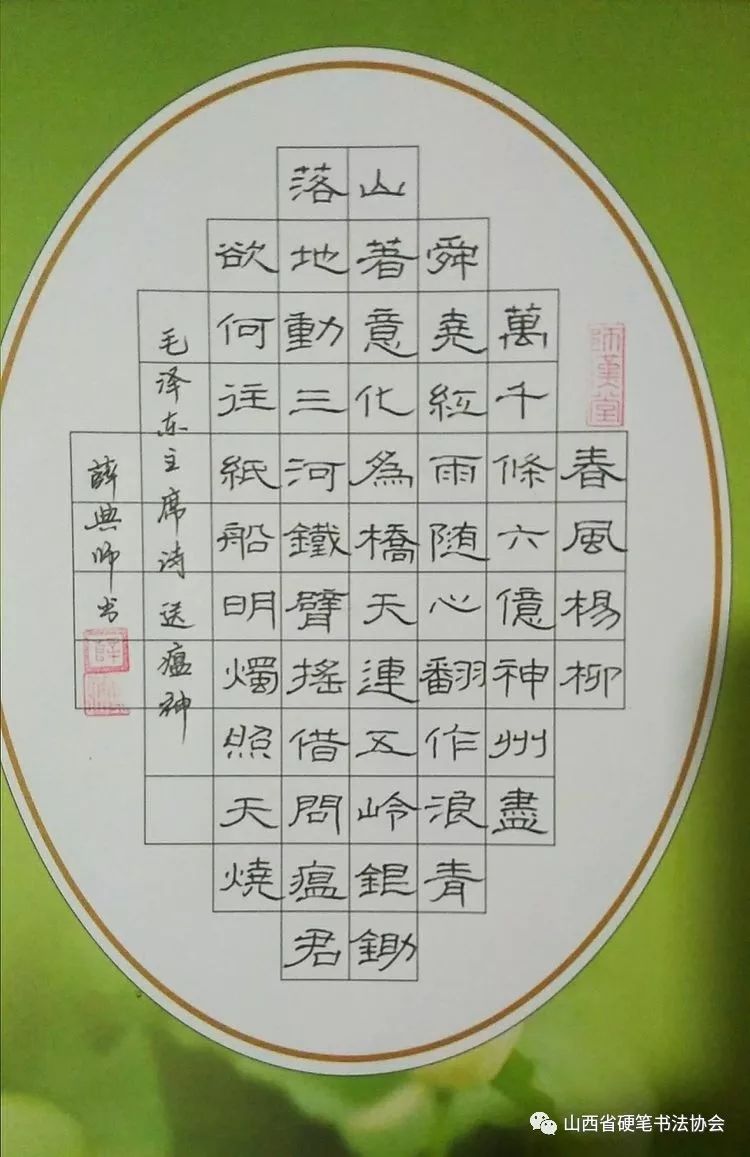 師漢堂
春風楊柳
萬千條六億神州盡
舜堯紅雨随心翻作浪青
山著意化為橋天連五岭銀鋤
落地動三河鐵臂搖借問瘟君
欲何往紙船明燭照天燒
毛泽东主席诗送瘟神
薛典师书
山西省硬笔书法协会